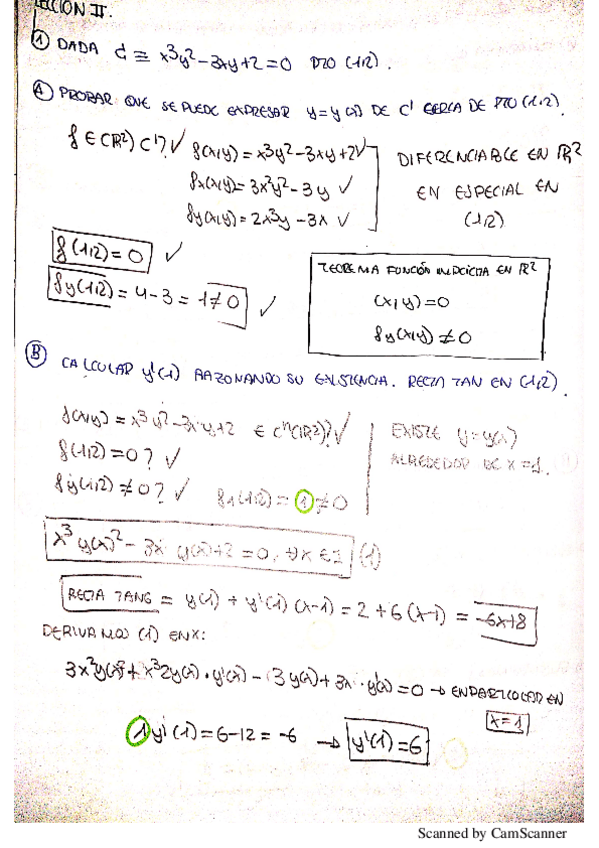 ECCION II.
① DADA C ≡ x³y²-3xy+2=0 PTO (1,2).
Ⓐ PROBAR QUE SE PUEDE EXPRESAR y=y(x) DE C' CERCA DE PTO (1,2).
f ∈ C(R²) C'? ✓ f(x,y)=x³y²-3xy+2 ✓
fx(x,y)=3x²y²-3y ✓
fy(x,y)=2x³y-3x ✓
DIFERENCIABLE EN R²
EN ESPECIAL EN
(1,2)
f(1,2)=0 ✓
fy(1,2)=4-3=1≠0 ✓
TEOREMA FUNCIÓN IMPLÍCITA EN R²
(x,y)=0
fy(x,y)≠0
Ⓑ CALCULAR y'(1) RAZONANDO SU EXISTENCIA. RECTA TAN EN (1,2).
f(x,y)=x³y²-3xy+2 ∈ C'(R²)? ✓
f(1,2)=0? ✓
fy(1,2)≠0? ✓ f (1,2)=1≠0
EXISTE y=y(x)
ALREDEDOR DE x=1.
x³y(x)²-3x y(x)+2=0, ∀x∈I (1)
RECTA TANG = y(1)+y'(1)(x-1)=2+6(x-1)=-6x+8
DERIVAMOS (1) EN X:
3x²y(x)²+x³2y(x)·y'(x)-(3y(x)+3x·y'(x)=0 → EN PARTICULAR EN
x=1
1y'(1)=6-12=-6 → y'(1)=6
Scanned by CamScanner